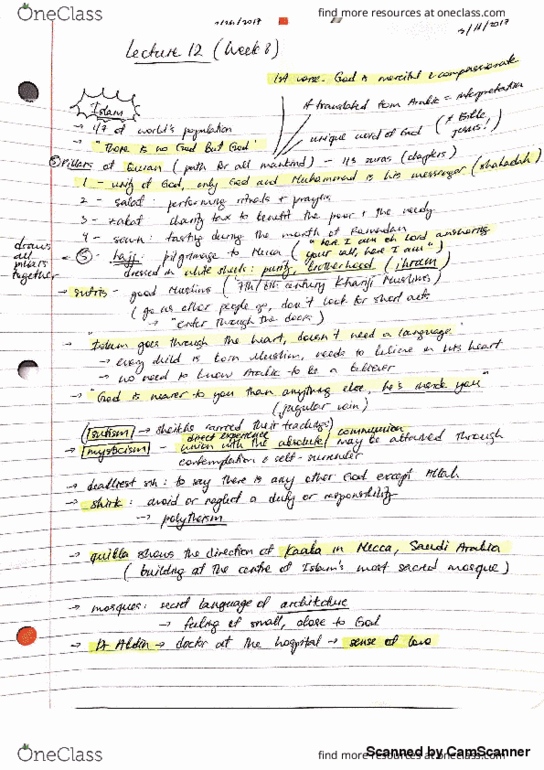 OneClass
find more resources at oneclass.com
find more resources at oneclass.com
Lecture 12 (Week 8)
1st verse: God is merciful & compassionate
Islam
# translated from Arabic = interpretation
→ 1/7 of world's population
unique word of God (≠ Bible, Jesus!)
→ "There is no God But God"
⑤ Pillars of Quran (path for all mankind) - 113 suras (chapters)
1 - unity of God, only God and Muhammad is his messenger (shahadah)
2 - salad: performing rituals + prayers
3 - zakat: charity tax to benefit the poor + the needy
4 - sawn: fasting during the month of Ramadan
draws all pillars together
⑤ - hajj: pilgrimage to Mecca ("here I am oh Lord answering your call, here I am")
dressed in white sheets: purity, brotherhood (ihram)
→ sufis - good Muslims (7th/8th century Kharij Muslims)
(go as other people go, don't look for short cuts)
→ "enter through the doors")
→ "Islam goes through the heart, doesn't need a language"
→ every child is born Muslim, needs to believe in his heart
→ no need to know Arabic to be a believer
→ "God is nearer to you than anything else, he's inside you"
(jugular vein)
(sufism) → sheikhs carried their teachings)
direct experience communion
→ mysticism - union with the absolute may be attained through
contemplation & self-surrender
→ deadliest sin: to say there is any other God except Allah
→ shirk: avoid or neglect a duty or responsibility
→ polytheism
→ quibla shows the direction of Kaaba in Mecca, Saudi Arabia
(building at the centre of Islam's most sacred mosque)
→ mosques: secret language of architecture
→ feeling of small, close to God
→ Dr Aldin → doctor at the hospital → sense of love
OneClass
find more resources at oneclass.com
Scanned by CamScanner